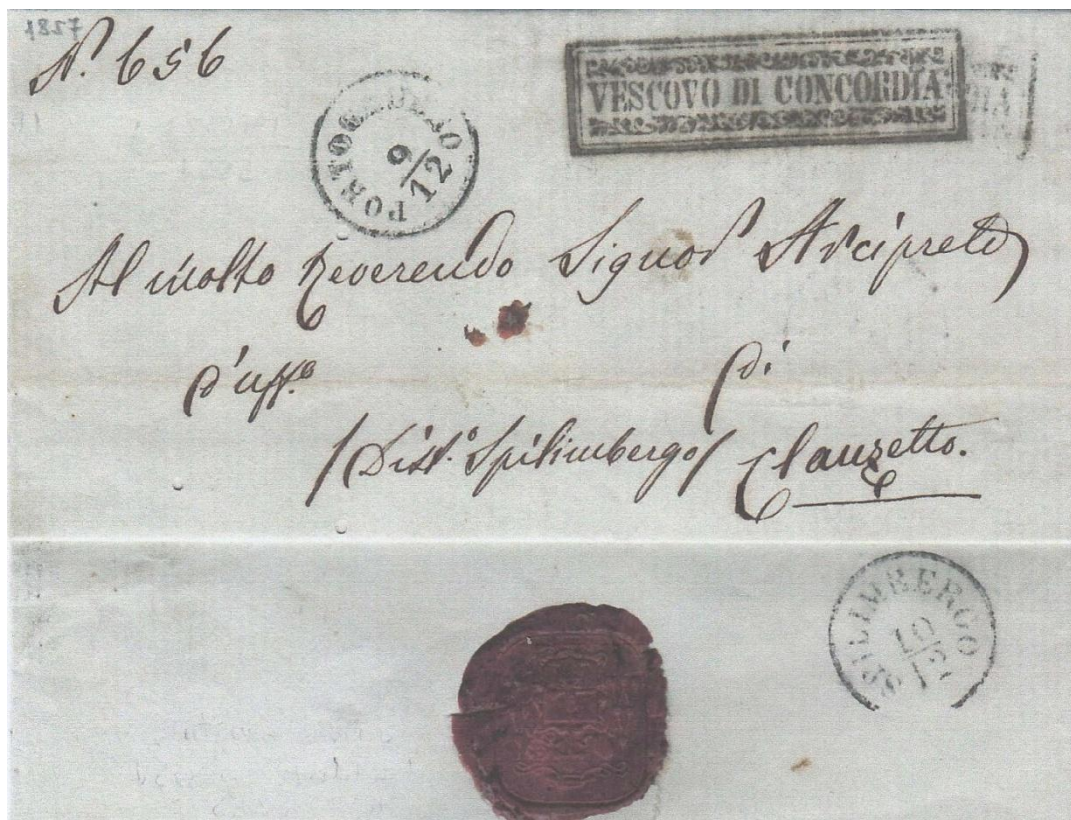 1857
N. 656
VESCOVO DI CONCORDIA
DIA
PORTOGRUARO
9/12
Al molto Reverendo Signor Arciprete
d'uff.o di
/Dist.o Spilimbergo/ Clauzetto.
SPILIMBERGO
10/12